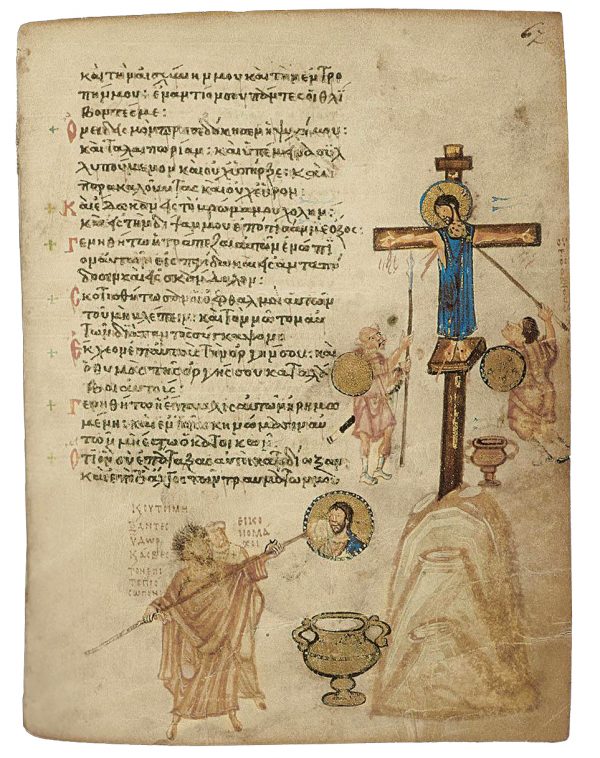 καὶ τὴν αἰσχύνην μου καὶ τὴν ἐντρο
πήν μου: ἐναντίον σου πάντες οἱ θλί
βοντές με:
Ὀνειδισμὸν προσεδόκησεν ἡ ψυχή μου:
καὶ ταλαιπωρίαν: καὶ ὑπέμεινα συλ
λυπούμενον καὶ οὐχ ὑπῆρξε: καὶ
παρακαλοῦντας καὶ οὐχ εὗρον:
Καὶ ἔδωκαν εἰς τὸ βρῶμά μου χολήν:
καὶ εἰς τὴν δίψαν μου ἐπότισάν με ὄξος:
Γενηθήτω ἡ τράπεζα αὐτῶν ἐνώπι
ον αὐτῶν εἰς παγίδα καὶ εἰς ἀνταπό
δοσιν καὶ εἰς σκάνδαλον:
Σκοτισθήτωσαν οἱ ὀφθαλμοὶ αὐτῶν
τοῦ μὴ βλέπειν: καὶ τὸν νῶτον αὐ
τῶν διὰ παντὸς σύγκαμψον:
Ἔκχεον ἐπ' αὐτοὺς τὴν ὀργήν σου: καὶ
ὁ θυμὸς τῆς ὀργῆς σου καταλά
βοι αὐτούς:
Γενηθήτω ἡ ἔπαυλις αὐτῶν ἠρημω
μένη: καὶ ἐν τοῖς σκηνώμασιν αὐ
τῶν μὴ ἔστω ὁ κατοικῶν:
Ὅτι ὃν σὺ ἐπάταξας αὐτοὶ κατεδίωξαν:
καὶ ἐπὶ τὸ ἄλγος τῶν τραυμάτων μου
67
ΕΙΚΟ
ΝΟΜΑ
ΧΟΙ
ΥΔΩΡ